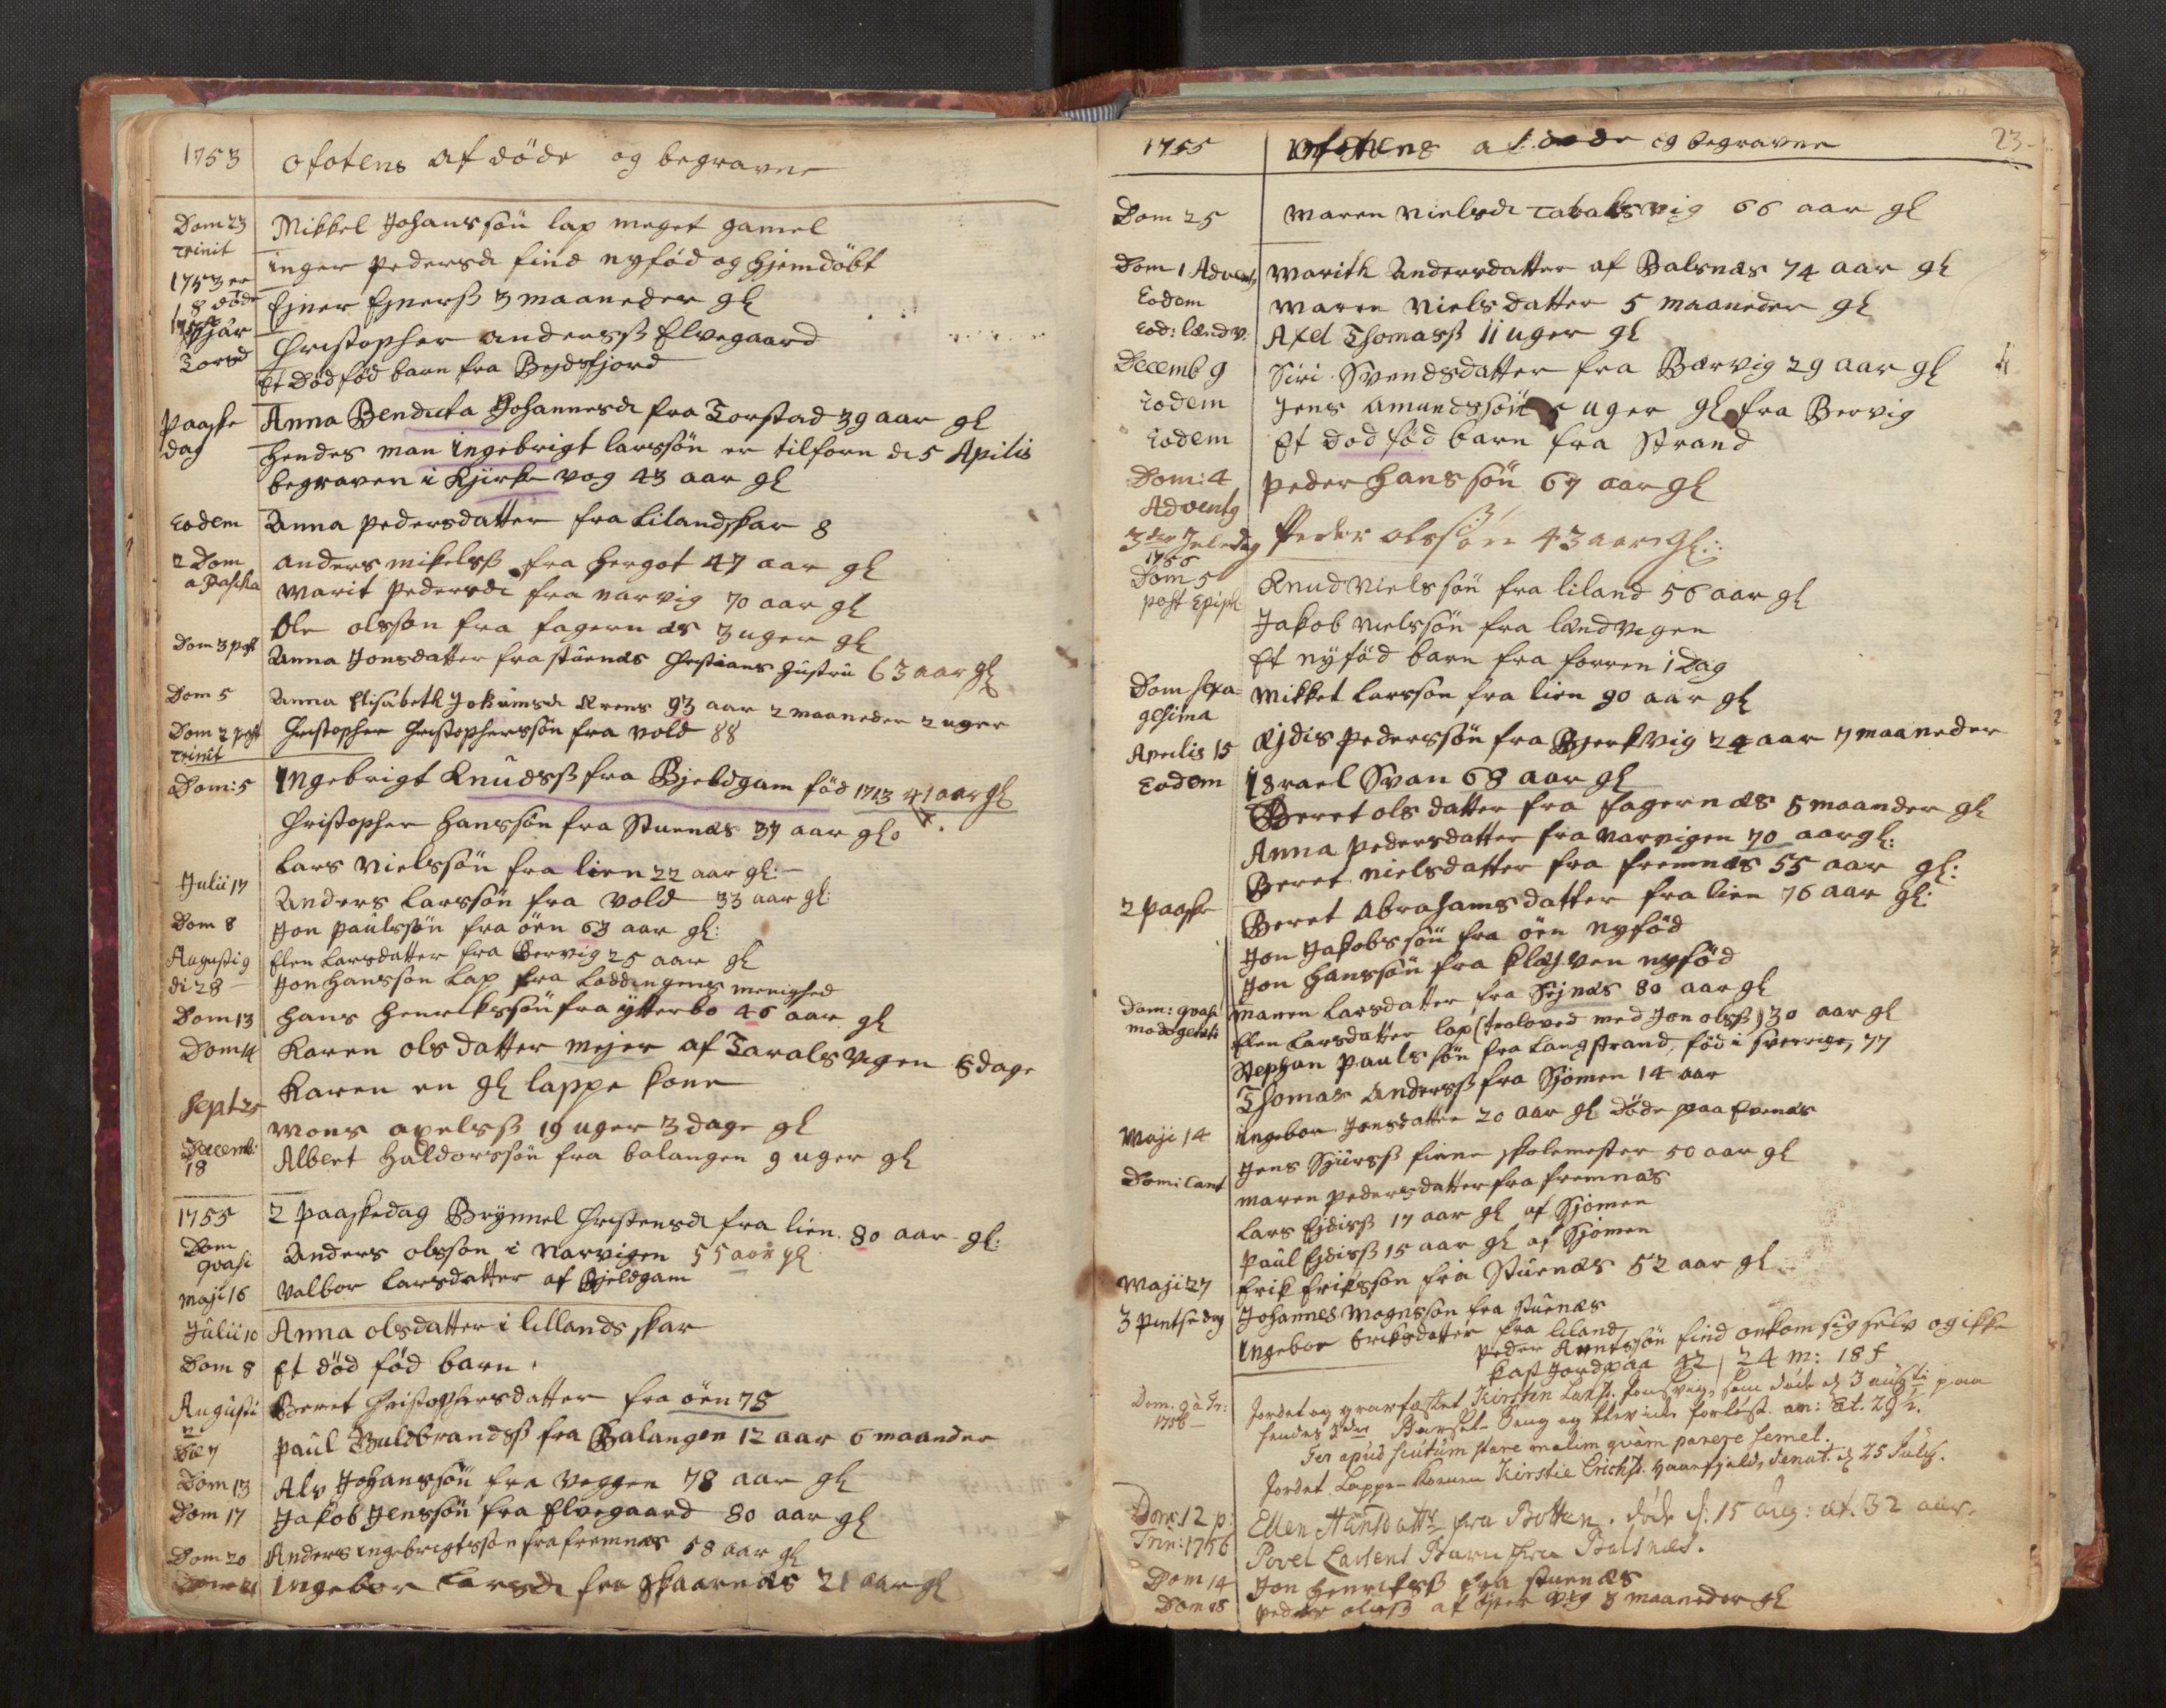 1753 Ofotens af döde og begravne
Dom 23 Mikkel Johanssön lap meget gamel
Trinit
inger pedersd find nyföd og hjemdöbt
1753 er
18 döde Ejner Ejnerss 3 maaneder gl
Christopher anderss Elvegaard
Et Död föd barn fra Bejdsfjord
paaske Anna Bendicta Johannesd fra Torstad 39 aar gl
dag hendes man ingebrigt larssön er tilforn d 5 Apilis
begraven i Kjirkevog 43 aar gl
Eodem Anna pedersdatter fra Lilandskar 8
2 Dom anders mikelss fra hergot 47 aar gl
a Pascha marit pedersd fra narvig 70 aar gl
Ole olsson fra fagernæs 3 uger gl
Dom 3 post Anna Jonsdatter fra stuenæs Christians hustru 63 aar gl
Dom 5 Anna Elisabeth Jokumsd Arens 93 aar 2 maaneder 2 uger
Dom 2 post Christopher Christopherssön fra vold 88
Trinit
Dom: 5 Ingebrigt Knudss fra Bjeldgam föd 1713 41 aar gl
Christopher hanssön fra Stuenæs 37 aar gl
Lars Nielssön fra lien 22 aar gl:
Julii 17 Anders Larssön fra vold 33 aar gl:
Dom 8 Jon paulssön fra öen 63 aar gl:
Augusti 9 Elen Larsdatter fra Bervig 25 aar gl
di 28 Jon hansson Lap fra Loddingens menighed
Dom 13 hans henrikssön fra ytterbo 46 aar gl
Dom 14 Karen olsdatter mejer af Taralsvigen 6 dage
Karen en gl lappe kone
Sept 25 mons axelss 19 uger 3 dage gl
Decemb: Albert haldorssön fra balangen 9 uger gl
18
1755 2 paaskedag Brynnel Christensd fra lien 80 aar gl:
Dom Anders olsson i Narvigen 55 aar gl
qvasi
maji 16 valbor Larsdatter af Bjeldgam
Julii 10 Anna olsdatter i lillandsskar
Dom 8 Et död föd barn
Augusti Beret Christophersdatter fra öen 78
2
Die 7 paul Buldbrandss fra Balangen 12 aar 6 maander
Dom 13 Alv Johanssön fra veggen 78 aar gl
Dom 17 Jakob Jenssön fra Elvegaard 80 aar gl
Dom 20 Anders ingebrigtssön fra fremnæs 58 aar gl
Dom 21 ingebor Larsd fra skaarnæs 21 aar gl
1755 Ofotens af döde og begravne 23
Dom 25 maren nielsd Tabaksvig 66 aar gl
Dom 1 Advent marith Andersdatter af Balsnæs 74 aar gl
Eodem maren nielsdatter 5 maaneder gl
Eod: lændv. Axel Thomass 11 uger gl
Decemb 9 Siri Svendsdatter fra Bærvig 29 aar gl
Eodem Jens Amundssön uger gl fra Bervig
Eodem Et Dod föd barn fra Strand
Dom: 4 peder hanssön 67 aar gl
Adventg
3die Juledag Peder olssön 43 aar gl:
1756
Dom 5 Knud Nielssön fra liland 56 aar gl
post Epiph
Jakob nielssön fra lændvigen
Et nyföd barn fra forren 1 Dag
Dom sexa= mikkel Larsson fra lien 90 aar gl
gesima
Aprilis 15 Ejdis pederssön fra Bjerkvig 24 aar 7 maaneder
Eodem Israel Svan 68 aar gl
Beret olsdatter fra fagernæs 5 maander gl
Anna pedersdatter fra narvigen 70 aar gl:
Beret nielsdatter fra fremnæs 55 aar gl:
2 paaske Beret Abrahamsdatter fra lien 76 aar gl:
Jon Jakobssön fra öen nyföd
Jon hanssön fra kløjven nyföd
Dom: qvasi maren Larsdatter fra Sejnæs 80 aar gl
modogeniti Elen Larsdatter lap (troloved med Jon olss) 30 aar gl
Stephan paulssön fra Langstrand, föd i sverrige, 77
Thomas Anderss fra Sjomen 14 aar
Maji 14 ingebor Jonsdatter 20 aar gl Döde paa Evenæs
Jens Sjurss finne skolemester 50 aar gl
Dom: Cant maren pedersdatter fra fremnæs
Lars Ejdiss 17 aar gl af Sjomen
paul Ejdiss 15 aar gl af Sjomen
Maji 27 Erik Eriksson fra Stuenæs 52 aar gl
3 pintsedag Johannes mogensson fra stuenæs
ingebor Eriksdatter fra liland
peder Arntssön find omkom sig selv og ikke
kast Jord paa 42 / 24 m: 18 f
Dom. 9 à Tr: Jordet og gravfæstet Kirsten Larsd. som döde d 3 augusti paa
1756 hendes Barsel Seng og blev ikke forlöst. an: æt. 29½.
Ter apud scutum stare malim qvàm parere semel.
Jordet Lappe-konen Kirstie Erichsd. denat. d 25 Julij.
Dom: 12 p: Ellen Hansdattr fra Botten, döde d: 15 aug: æt. 32 aar.
Trin: 1756 Povel Larsens Barn fra Balsnæs.
Dom 14 Jon henrikss fra stuenæs
Dom 18 peder olss af vig 3 maaneder gl